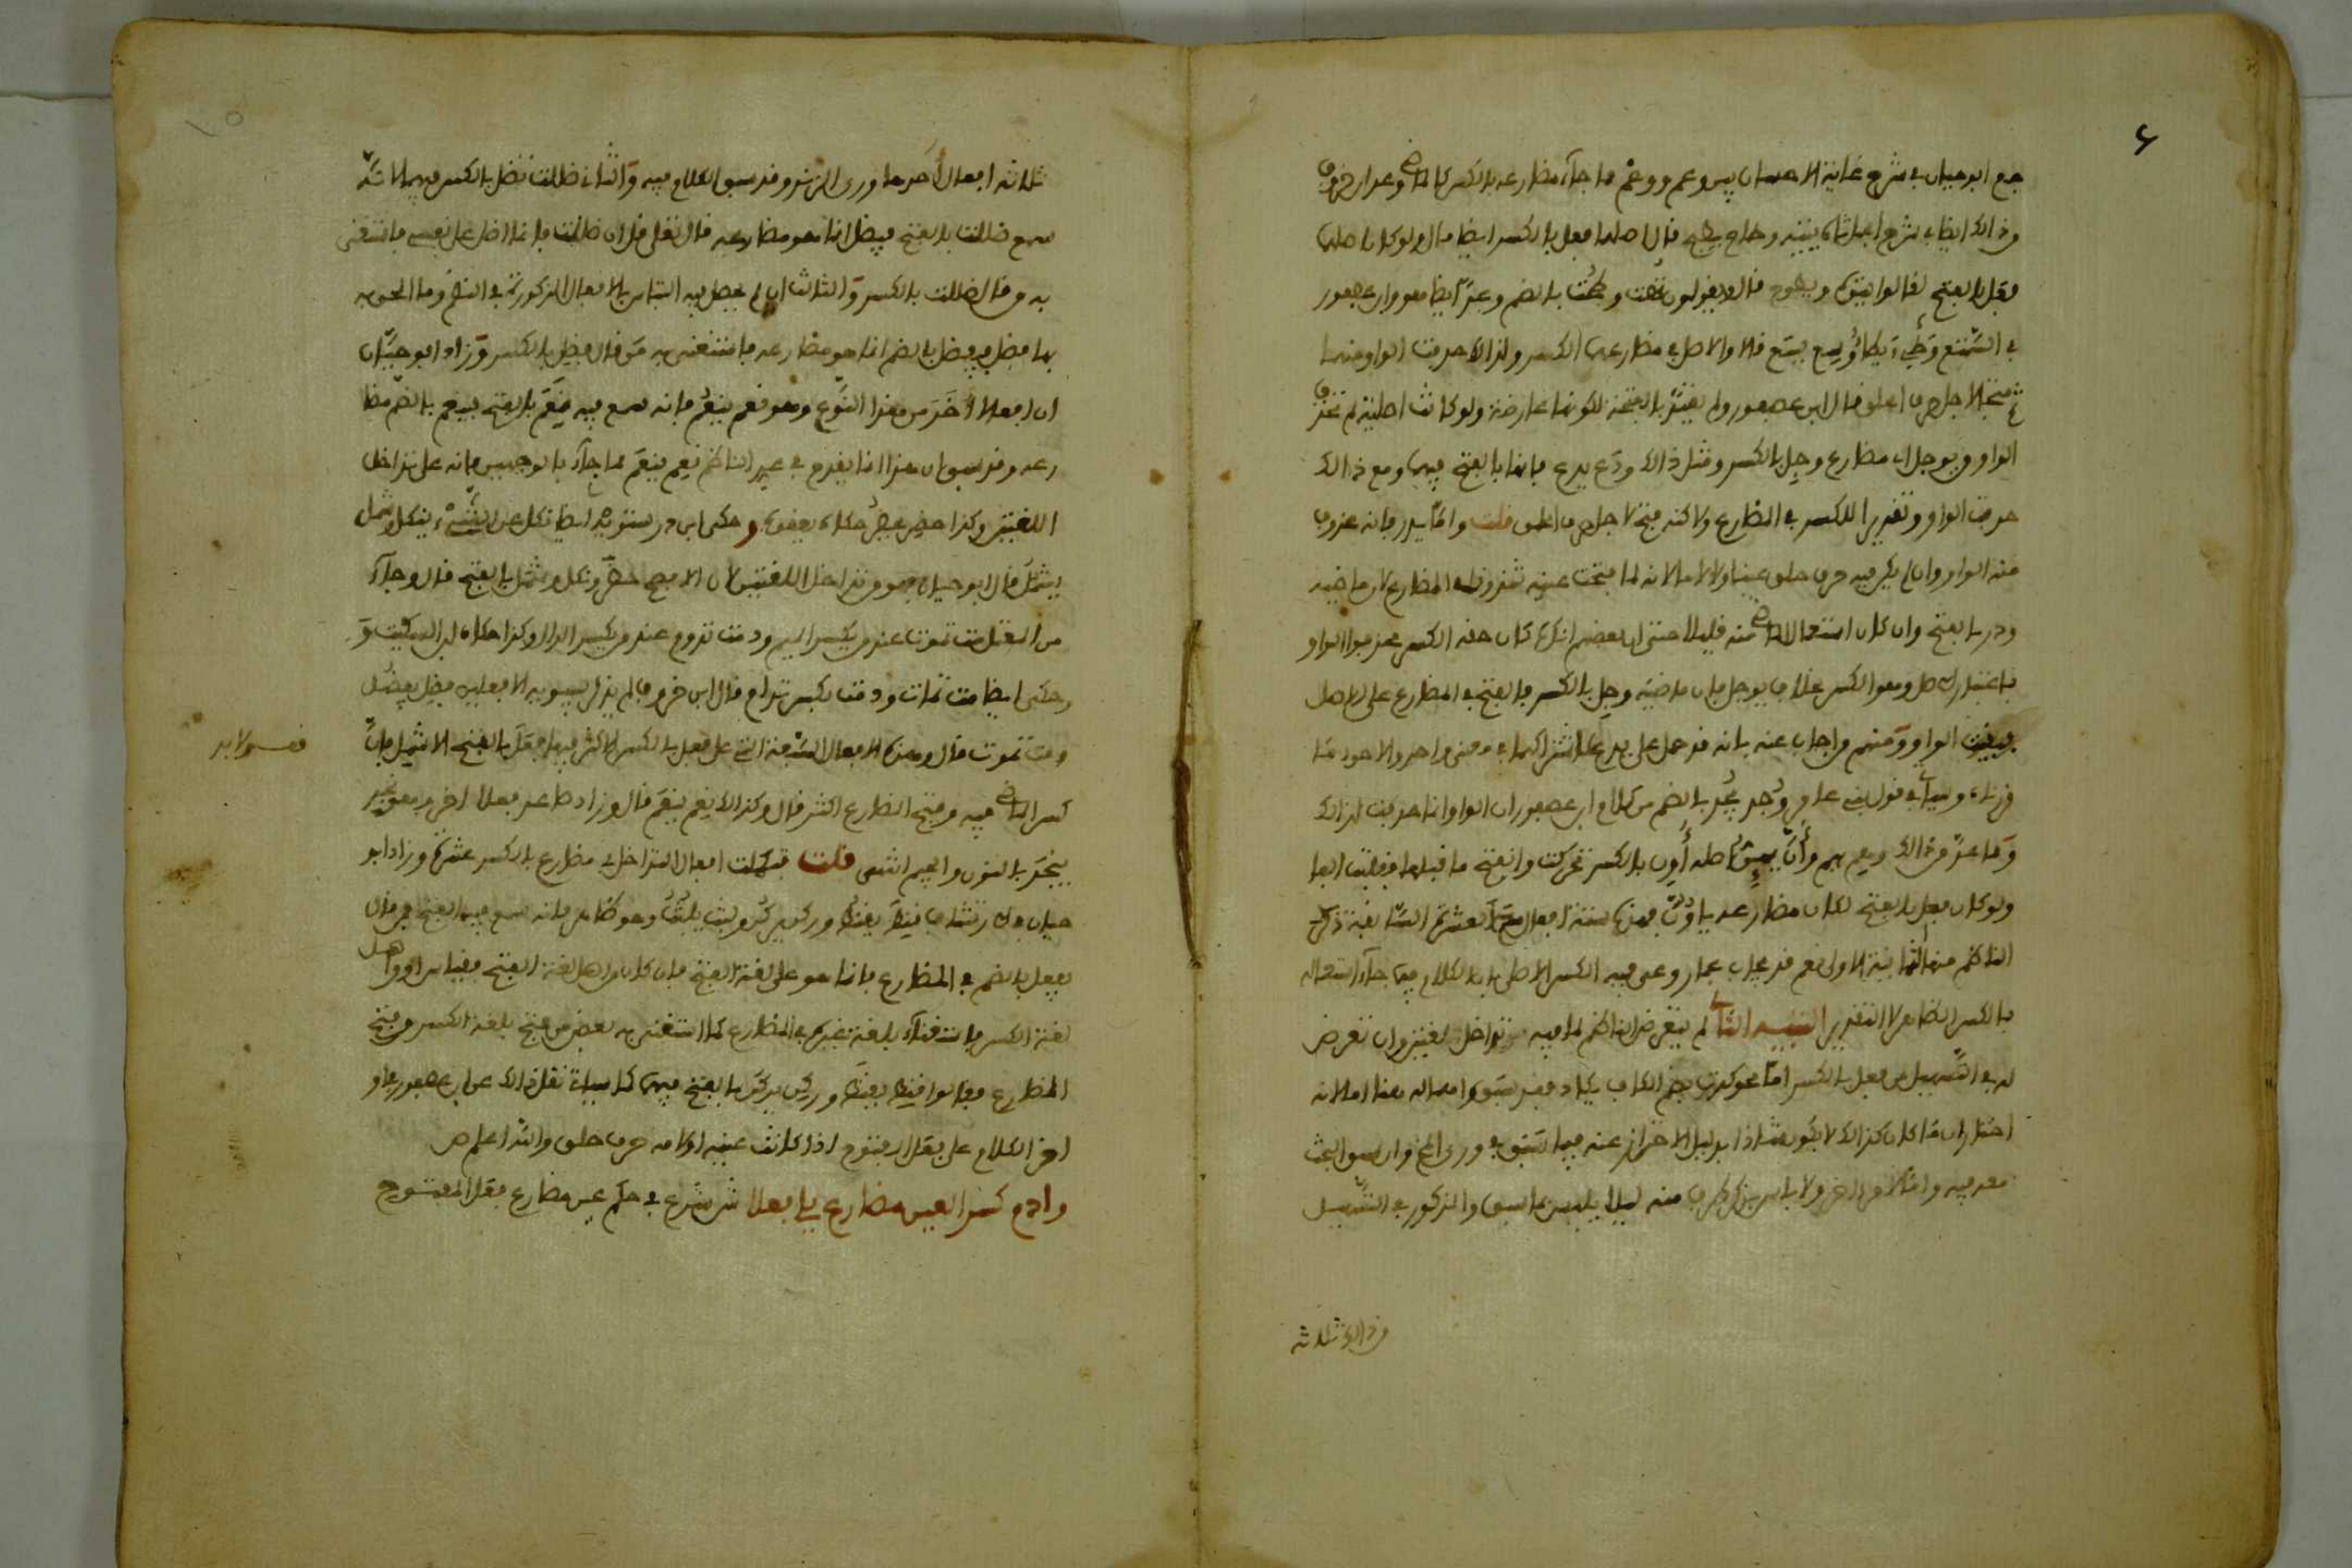 جمع ابو حيان في شرح غاية الاحسان بين وعم ووغم مما جاء مضارعه بالكسر كالماضي وعد ابن خروف
من ذالك ايضا في شرح الجمل تاه يتيه وطاح يطيح قال اصلهما فعل بالكسر ايضا قال ولو كان اصلهما
فعل بالفتح لقالوا يتوه ويطوح قال ولا يقولون تهت وطحت بالضم وعد ايضا هو وابن عصفور
في الممتع وطئ يطأ ووسع يسع قالا والاصل في مضارعهما الكسر ولذالك حذفت الواو منهما
ثم فتحا لاجل حرف الحلق قال ابن عصفور ولم يعتد بالفتحة لكونها عارضة ولو كانت اصلية لم تحذف
الواو ويوجل مضارع وجل بالكسر ومثل ذالك ودع يدع فانما بالفتح فيهما ومع ذالك
حذفت الواو وتقدير الكسر في المضارع ولاكنه فتح لاجل حرف الحلق قلت واما يذر فانه حذف
منه الواو وان لم يكن فيه حرف حلق عينا ولا لاما لانه لما فتحت عينه في المضارع لان ماضيه
وذر بالفتح وان كان استعمال الماضي منه قليلا حتى ان بعضهم انكره كان حقه الكسر فحذفوا الواو
باعتبار الاصل وهو الكسر بخلاف يوجل فان ماضيه وجل بالكسر فالفتح في المضارع على الاصل
فبقيت الواو ومنهم من اجاب عنه بانه قد حمل على يدع لاشتراكهما في معنى واحد والاجود ما
قدمناه وسيأتي في قول على من وجد يجد بالضم من كلام ابن عصفور ان الواو انما حذفت لذالك
ومما عد من ذالك وهم يهم وآن يئين اصله أون بالكسر تحركت وانفتح ما قبلها فقلبت الفا
ولو كان فعل بالفتح لكان مضارعه يؤون فهذه ستة افعال مع العشرة السابقة ذكر
الناظم منها الثمانية الاولى نعم قد يجاب بمار وعى فيه الكسر الاصل بان الكلام فيما جاء استعماله
بالكسر الظاهر لا التقدير التنبيه الثاني لم يتعرض الناظم لما فيه تداخل لغتين وان تعرض
له في التسهيل من فعل بالكسر اما نحو كدت بضم الكاف يكاد فقد سبق اهماله هنا اما لانه
اختار ان ما كان كذالك لا يكون شاذا بدليل الاحتراز عنه فيما سبق في ورى المخ وان سبق البحث
معه فيه واما لامر اخر ولا باس بذكر طرف منه ليلا يلتبس بما سبق والمذكور في التسهيل
من ذالك ثلاثة
ثلاثة افعال احدها ورى الزند وقد سبق الكلام فيه والثاني ضللت تضل بالكسر فيهما لانه
سمع ضللت بالفتح فيضل انما هو مضارعه قال تعلى قل ان ضللت فانما اضل على نفسي فاستغنى
به من قال ضللت بالكسر والثالث ان لم يحصل فيه التباس بالافعال المذكورة في النظم وما الحق به
بها فضل يفضل بالضم انما هو مضارعه فاستغنى به من قال فضل بالكسر وزاد ابو حيان
ان افعالا اخر من هذا النوع وهو نعم ينعم فانه سمع فيه نعم بالفتح ينعم بالضم مضا
رعه وقد سبق ان هذا انما يقدح في عد الناظم نعم ينعم مما جاء بالوجهين فانه على تداخل
اللغتين وكذا حضر يحضر حكاه يعقوب وحكى ابن درستويه ايضا نكل عن الشئ ينكل وشمل
يشمل قال ابو حيان وهو من تداخل اللغتين لان الافصح حضر ونكل وشمل بالفتح قال وجاء
من المعتل مت تموت عند من يكسر الميم ودمت تدوم عند من يكسر الدال وكذا حكاه ابن السكيت و
حكى ايضا مت تمات ودمت بكسر تدام قال ابن خروف لم يذكر سيبويه الا فعلين فضل يفضل
ومت تموت قال وهذه الافعال الستة التي على فعل بالكسر الاكثر فيها فعل بالفتح الا شمل فان
كسر الماضي فيه وفتح المضارع اكثر قال وكذالك نعم ينعم قال وزاد فعلا اخر وهو نجد
ينجد بالنون والجيم انتهى قلت فكملت افعال التداخل في مضارع بالكسر عشرة وزاد ابو
حيان في الارتشاف قنط يقنط وركن يركن ولبب يلبب وهو ظاهر فانه سمع فيهما الفتح فمن قال
يفعل بالضم في المضارع فانما هو على لغة الفتح فان كان من اهل لغة الفتح فقياس او من اهل
لغة الكسر فاستغناء بلغة غيره في المضارع كما استغنى به بعض من فتح بلغة الكسر من فتح
المضارع فقالوا قنط يقنط وركن يركن بالفتح فيهما كما سياتي نقل ذالك عن ابن عصفور في او
اخر الكلام على يفعل المفتوح اذا كانت عينه او لامه حرف حلق والله اعلم ص
وادم كسر العين مضارع يلي فعلا ش شرع في حكم عين مضارع فعل المفتوح